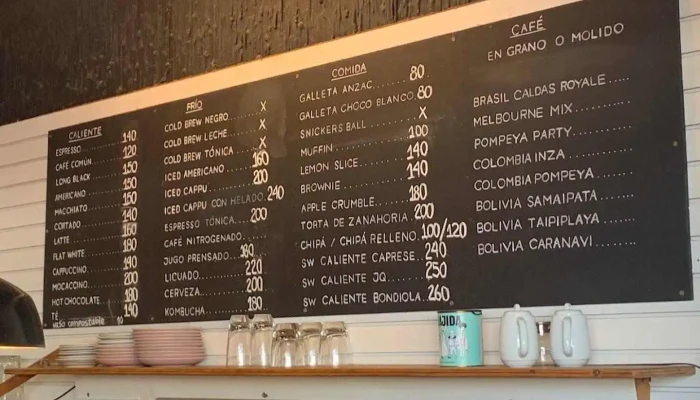 CALIENTE
ESPRESSO........140
CAFÉ COMÚN.....120
LONG BLACK......150
AMERICANO.......150
MACCHIATO.......150
CORTADO.........140
LATTE...........160
FLAT WHITE......180
CAPPUCCINO......190
MOCACCINO.......200
HOT CHOCOLATE...200
TÉ..............180
VASO COMPOSTABLE 10
FRÍO
COLD BREW NEGRO......X
COLD BREW LECHE......X
COLD BREW TÓNICA.....X
ICED AMERICANO.......160
ICED CAPPU...........200
ICED CAPPU CON HELADO.240
ESPRESSO TÓNICA......200
CAFÉ NITROGENADO....
JUGO PRENSADO........180
LICUADO..............220
CERVEZA..............200
KOMBUCHA.............180
COMIDA
GALLETA ANZAC.........80
GALLETA CHOCO BLANCO.80
SNICKERS BALL........X
MUFFIN...............100
LEMON SLICE..........140
BROWNIE..............140
APPLE CRUMBLE........180
TORTA DE ZANAHORIA...200
CHIPÁ / CHIPÁ RELLENO.100/120
SW CALIENTE CAPRESE..240
SW CALIENTE JQ.......250
SW CALIENTE BONDIOLA.260
CAFÉ
EN GRANO O MOLIDO
BRASIL CALDAS ROYALE.....
MELBOURNE MIX.........
POMPEYA PARTY.........
COLOMBIA INZA.........
COLOMBIA POMPEYA......
BOLIVIA SAMAIPATA.....
BOLIVIA TAIPIPLAYA....
BOLIVIA CARANAVI.......